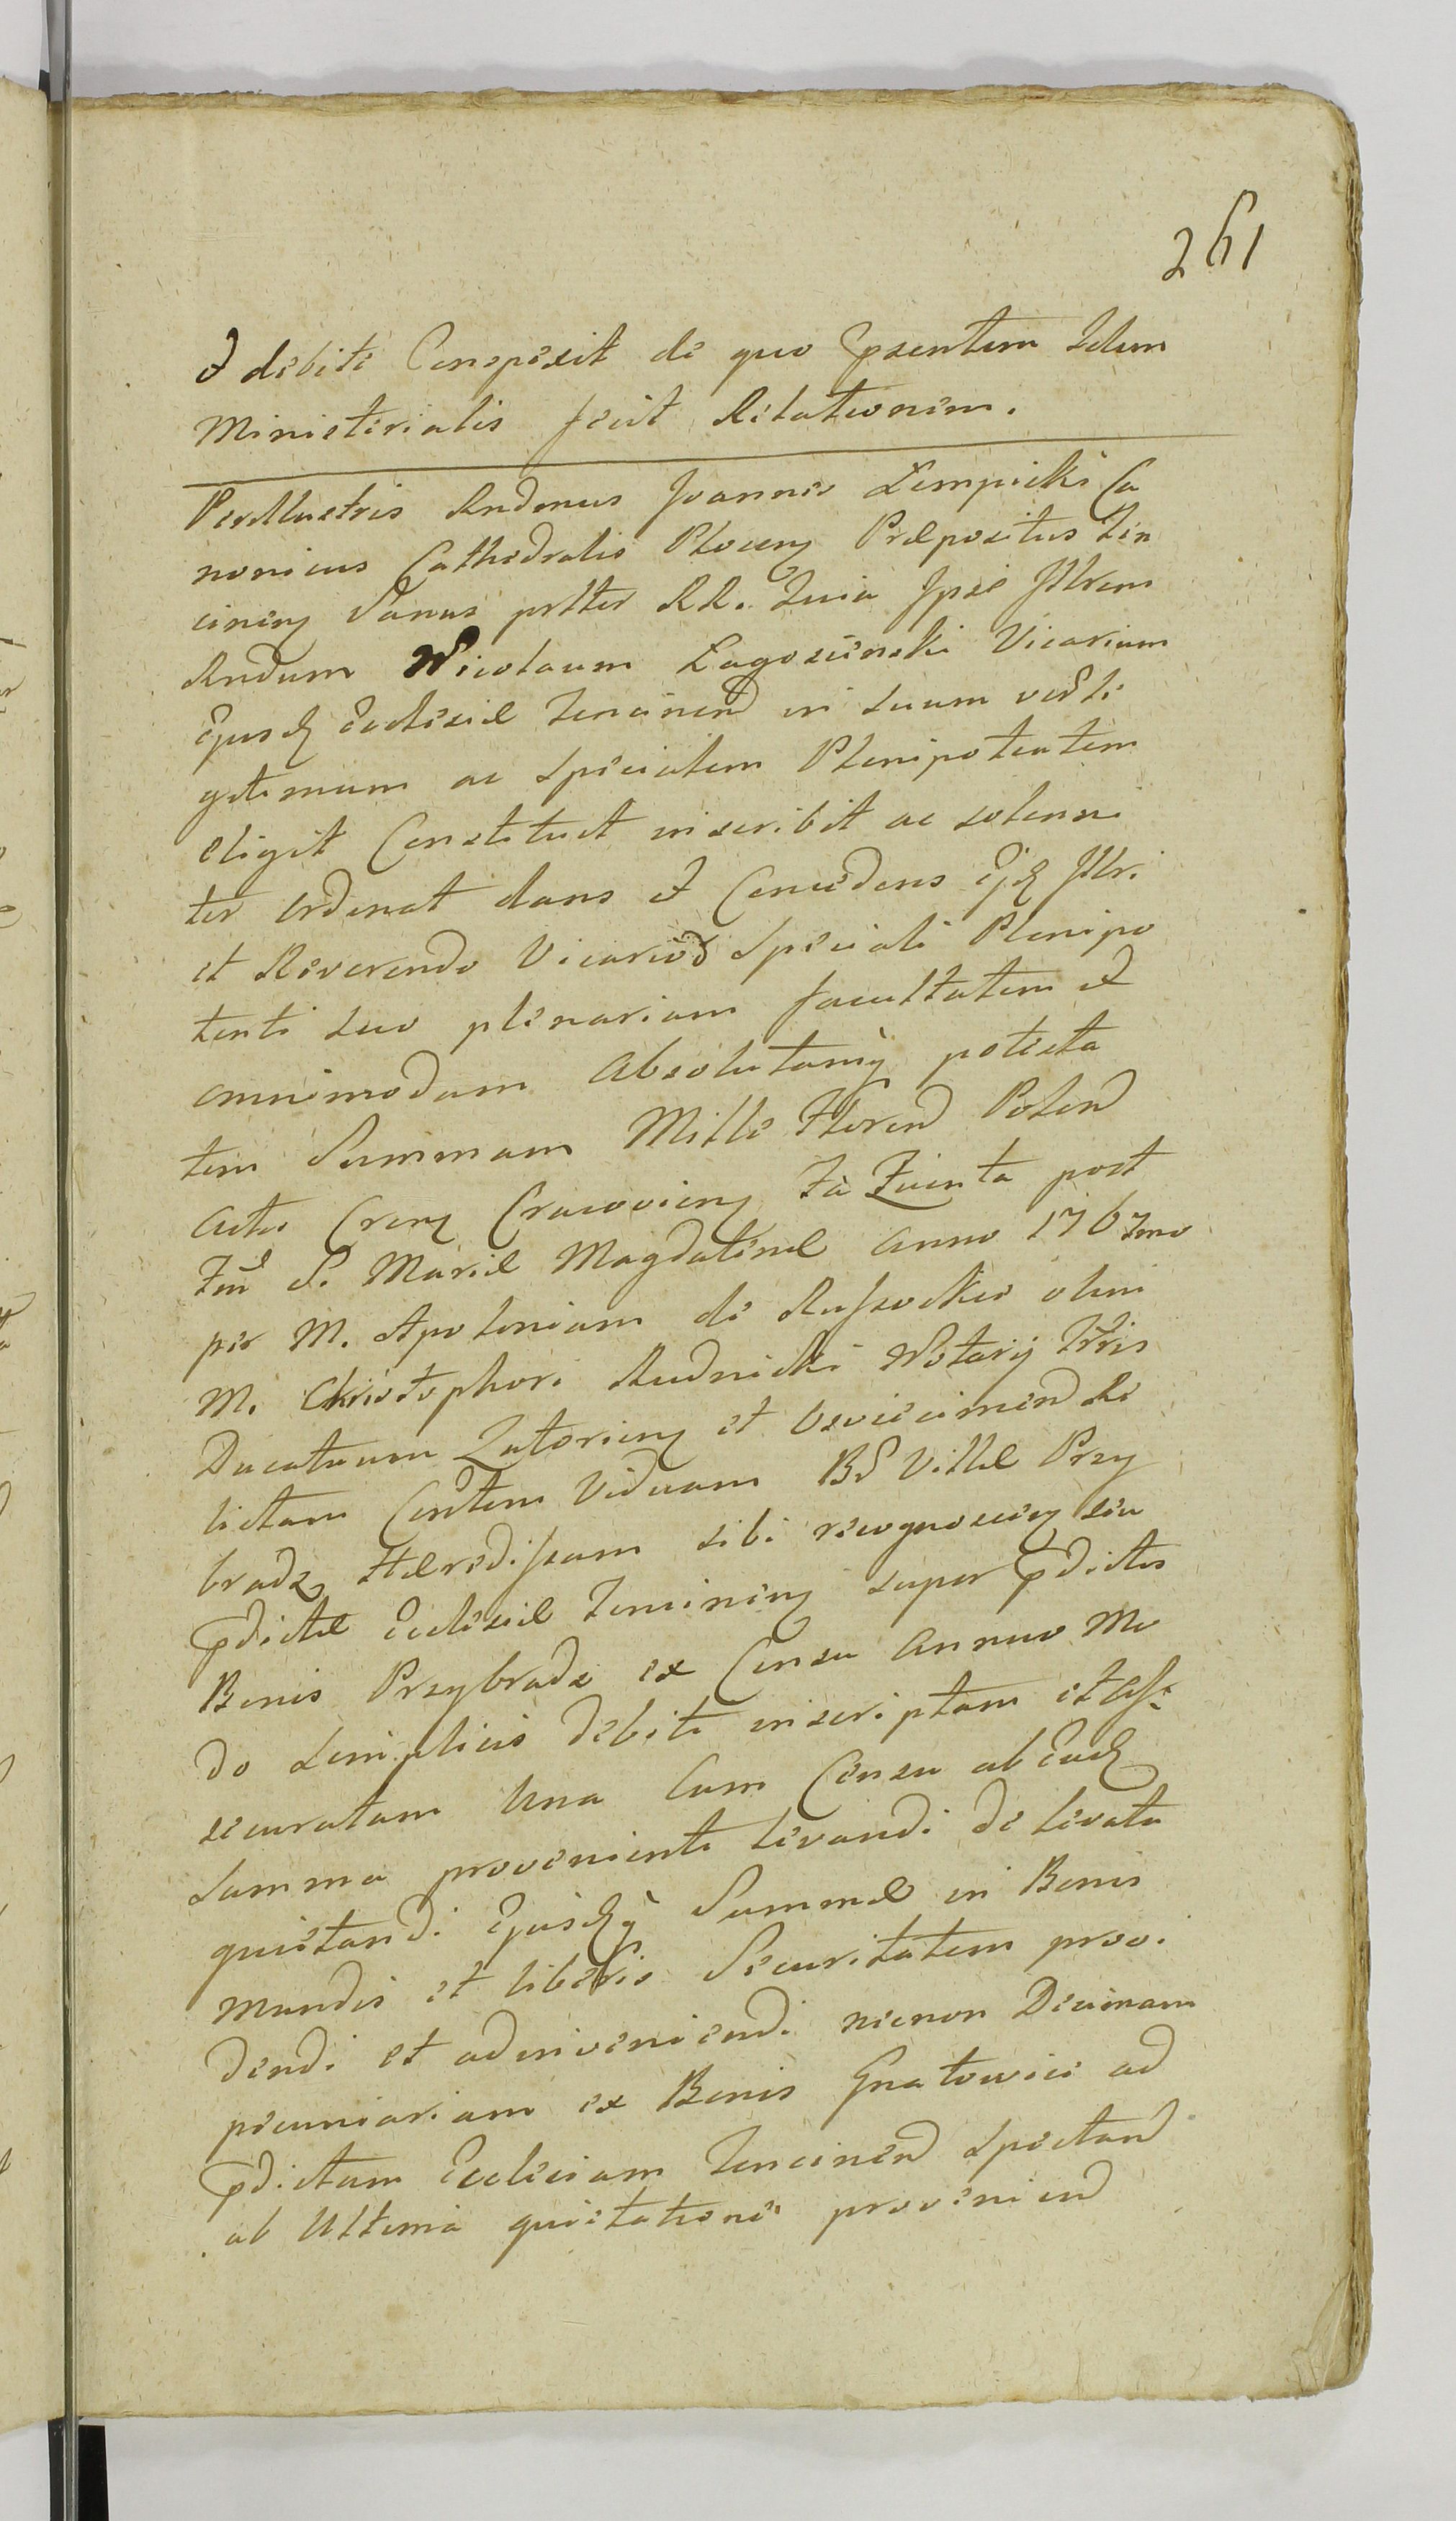 261
et debite Conspexit de quo praesentem Idem
Ministerialis fecit Relationem.
Perillustris Rndmus Joannes Łempicki Ca
nonicus Cathedralis Plocen Præpositus Ten
cinen Sanus prtter RR. Quia Ipse Illrem
Rndum Nicolaum Łagosiński Vicarium
Ejusd Ecclesiæ Tencinen in suum ver Le
gitimum ac Specialem Plenipotentem
eligit Constituit inscribit ac solenni
ter ordinat dans et Concedens Ejd Illri
et Reverendo Vicario Speciali Plenipo
tenti suo plenariam facultatem et
omnimodam Absolutamq potesta
tem Summam Mille Floren Polon
Actis Cren Cracovien Fa Quinta post
Fm S. Mariæ Magdalenæ Anno 1767mo
per M. Apoloniam de Russockie olim
M. Christophori Rudnicki Notarij Trris
Ducatuum Zatorien et Osviecimen Re
lictam Consortem Viduam BS Villæ Przy
bradz Hæredissam sibi recognoscen seu
pdictæ Ecclesiæ Tencinen super pdictis
Bonis Przybradz ex Censu Annuo Mo
do Simplicis debiti inscriptam et As-
securatam Una Cum Censu ab Ead
Summa proveniente levandi de levata
quietandi Ejusdq Summæ in Bonis
mundis et liberis Securitatem provi
dendi et adinveniendi necnon Decimam
pecuniariam ex Bonis Gnatowice ad
pdictam Ecclesiam Tencinen Spectan
ab Ultima quietatione provenien